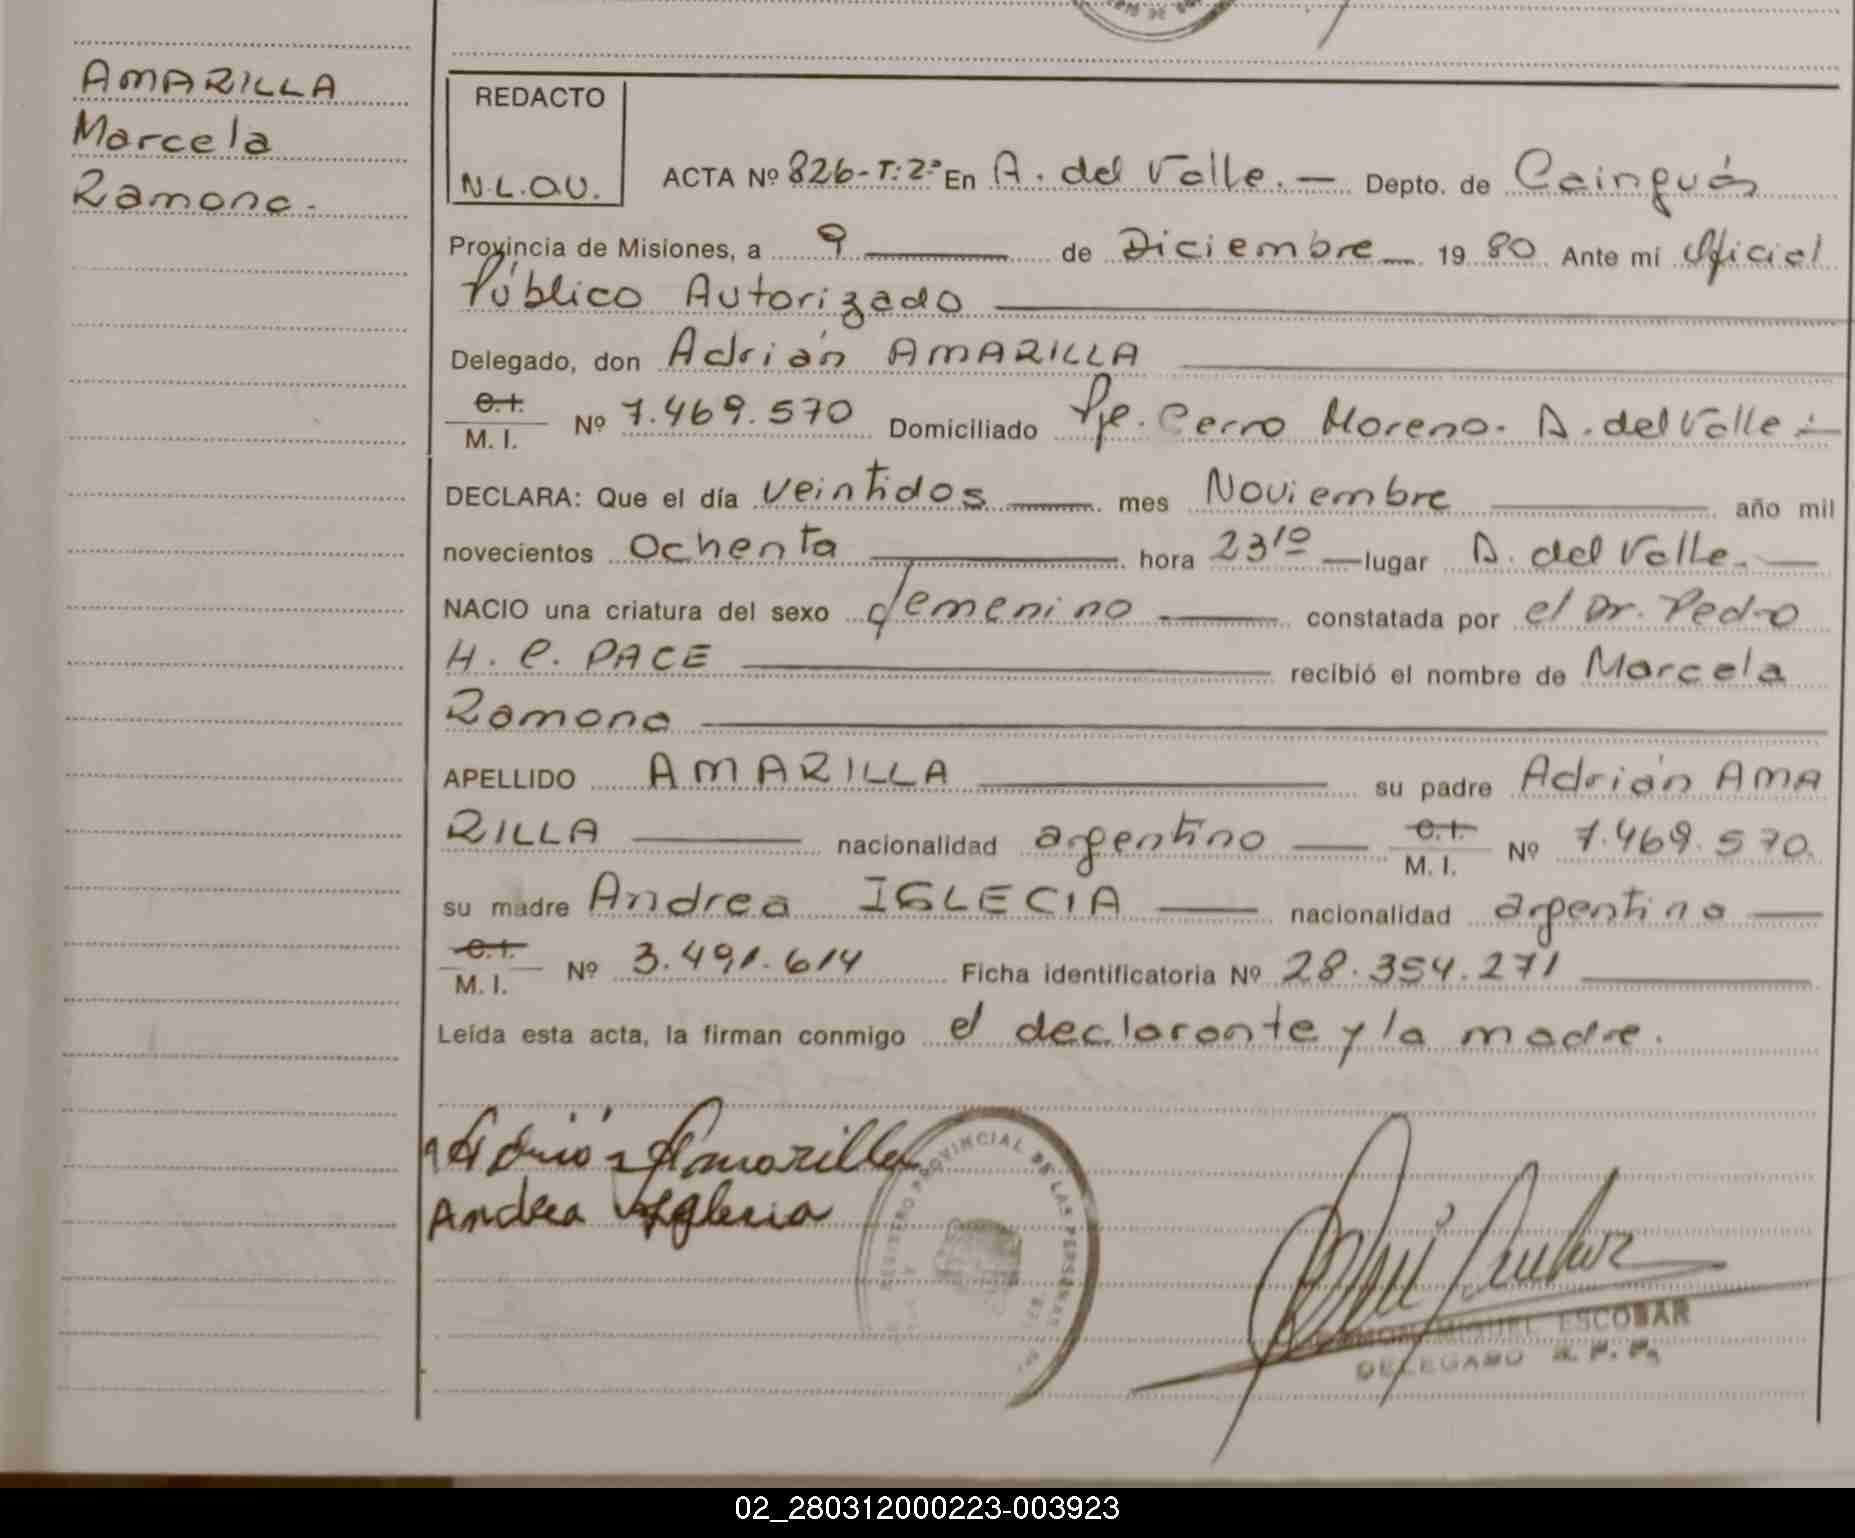 AMARILLA
Marcela
Ramona.
REDACTO
N.L.O.V.
ACTA Nº 826-T:2º En A. del Valle. — Depto. de Cainguás
Provincia de Misiones, a 9 — de Diciembre — 19 80 Ante mí Oficial
Público Autorizado
Delegado, don Adrián AMARILLA
C.I.
M. I. Nº 7.469.570 Domiciliado Pje. Cerro Moreno. A. del Valle.—
DECLARA: Que el día veintidos — mes Noviembre — año mil
novecientos Ochenta — hora 23¹⁰ — lugar A. del Valle. —
NACIO una criatura del sexo femenino — constatada por el Dr. Pedro
H. C. PACE — recibió el nombre de Marcela
Ramona
APELLIDO AMARILLA — su padre Adrián AMA
RILLA — nacionalidad argentino — C.I. M. I. Nº 7.469.570.
su madre Andrea IGLECIA — nacionalidad argentina —
C.I.
M. I. Nº 3.491.614 Ficha identificatoria Nº 28.354.271
Leída esta acta, la firman conmigo el declarante y la madre.
Adrián Amarilla
Andrea Iglecia
REGISTRO PROVINCIAL DE LAS PERSONAS
RAMON MIGUEL ESCOBAR
DELEGADO R. P. P.
02_280312000223-003923